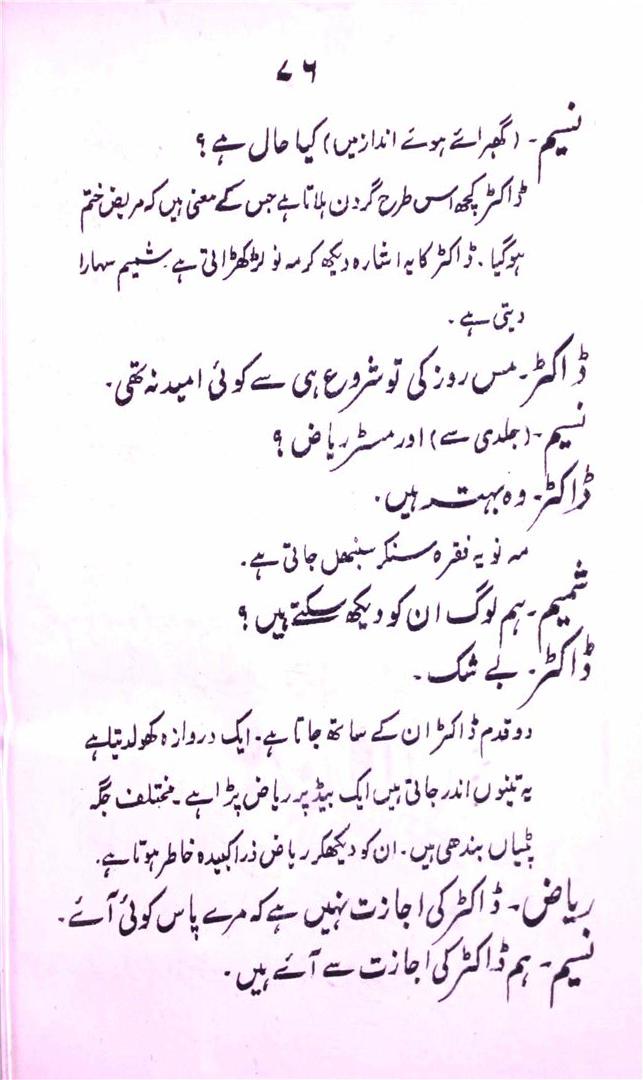 ۷۶
نسیم۔ (گھبرائے ہوئے انداز میں) کیا حال ہے ؟
ڈاکٹر کچھ اس طرح گردن ہلاتا ہے جس کے معنی ہیں کہ مریض ختم
ہو گیا۔ ڈاکٹر کا یہ اشارہ دیکھ کر مہ نو لڑکھڑاتی ہے۔ شمیم سہارا
دیتی ہے۔
ڈاکٹر۔ مس روز کی تو شروع ہی سے کوئی امید نہ تھی۔
نسیم۔ (جلدی سے) اور مسٹر ریاض ؟
ڈاکٹر۔ وہ بہتر ہیں۔
مہ نو یہ فقرہ سنکر سنبھل جاتی ہے۔
شمیم۔ ہم لوگ ان کو دیکھ سکتے ہیں ؟
ڈاکٹر۔ بے شک۔
دو قدم ڈاکٹر ان کے ساتھ جاتا ہے۔ ایک دروازہ کھولدیتا ہے
یہ تینوں اندر جاتی ہیں ایک بیڈ پر ریاض پڑا ہے۔ مختلف جگہ
پٹیاں بندھی ہیں۔ ان کو دیکھکر ریاض ذرا کبیدہ خاطر ہوتا ہے۔
ریاض۔ ڈاکٹر کی اجازت نہیں ہے کہ مرے پاس کوئی آئے۔
نسیم۔ ہم ڈاکٹر کی اجازت سے آئے ہیں۔